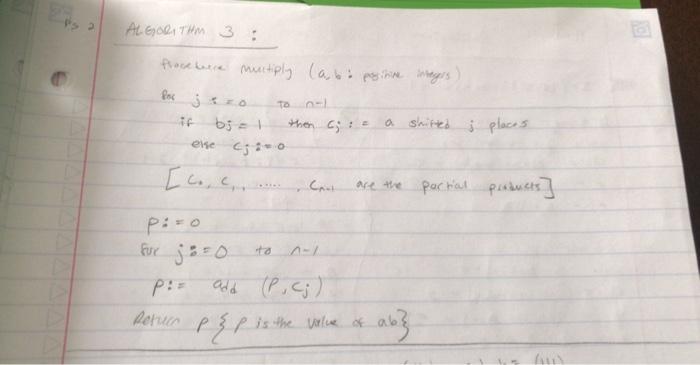 Ps 2
ALGORITHM 3 :
Procedure multiply (a, b : positive integers)
for j := 0 to n-1
if bj = 1 then cj := a shifted j places
else cj := 0
[C0, C1, ....., Cn-1 are the partial products]
p := 0
for j := 0 to n-1
p := add (P, Cj)
Return P { P is the value of ab}
(111)